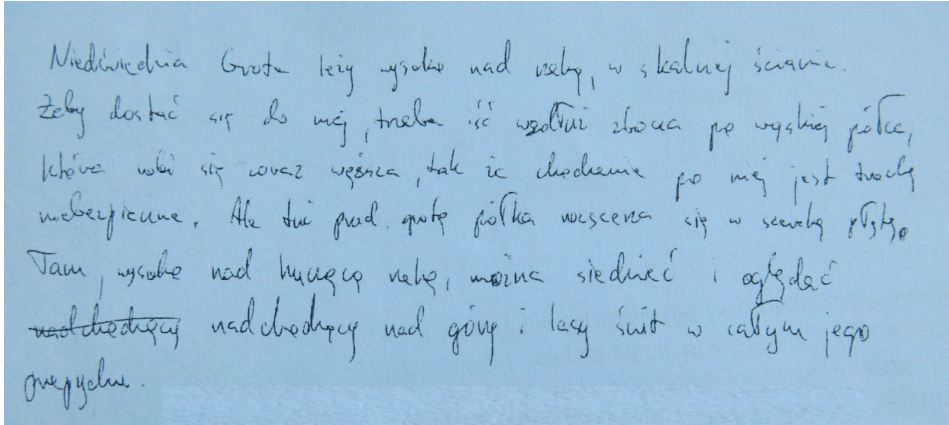 Niedźwiedzia Grota leży wysoko nad rzeką, w skalnej ścianie.
Żeby dostać się do niej, trzeba iść wzdłuż zbocza po wąskiej półce,
która robi się coraz węższa, tak że chodzenie po niej jest trochę
niebezpieczne. Ale tuż przed grotą półka rozszerza się w szeroką płytę.
Tam, wysoko nad huczącą rzeką, można siedzieć i oglądać
nadchodzący nadchodzący nad góry i lasy świt w całym jego
przepychu.